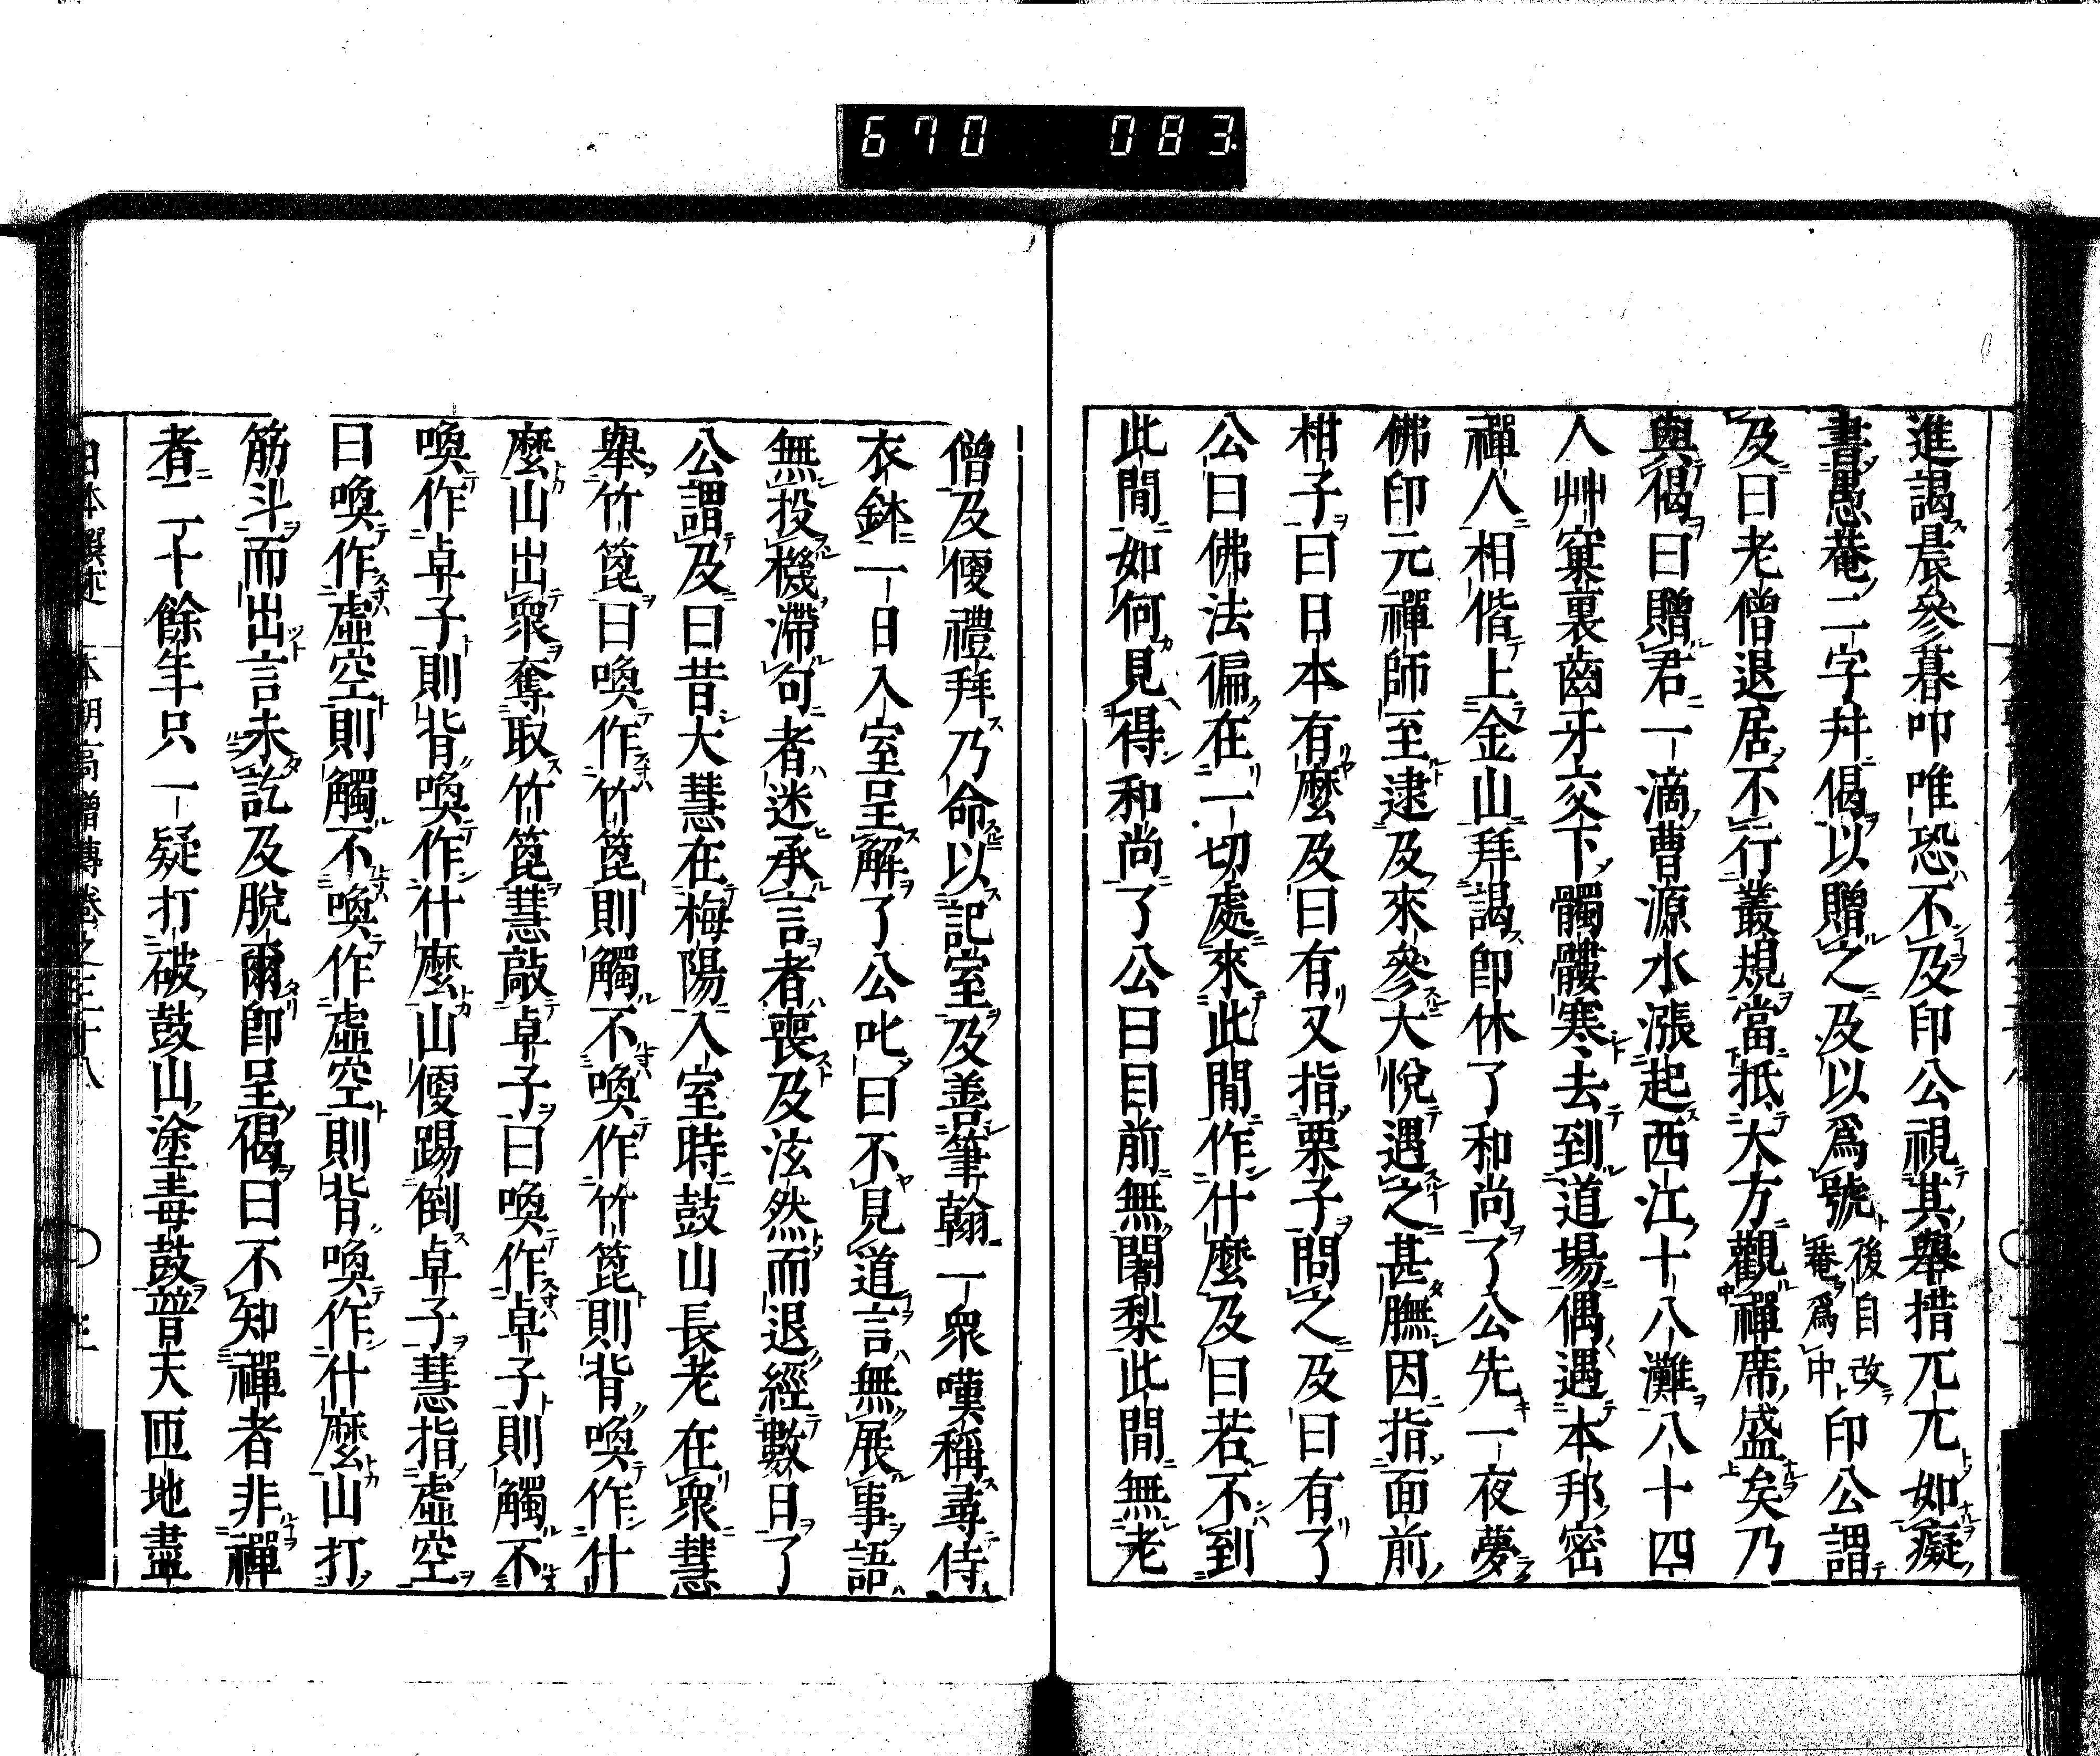 670 083
進謁晨參暮叩唯恐不及印公視其擧措兀兀如癡
書愚菴二字幷偈以贈之及以爲號後自改菴爲中印公謂
及曰老僧退居不行叢規當抵大方觀禪席盛矣乃
與偈曰贈君一滴曹源水漲起西江十八灘八十四
人艸窠裏齒牙交下髑髏寒去到道場偶遇本邦密
禪人相偕上金山拜謁卽休了和尚了公先一夜夢
佛印元禪師至逮及來參大悅遇之甚膴因指面前
柑子曰日本有麼及曰有又指栗子問之及曰有了
公曰佛法徧在一切處來此間作什麼及曰若不到
此間如何見得和尚了公曰目前無闍梨此間無老
僧及便禮拜乃命以記室及善筆翰一衆嘆稱尋侍
衣鉢一日入室呈解了公叱曰不見道言無展事語
無投機滯句者迷承言者喪及泫然而退經數日了
公謂及曰昔大慧在梅陽入室時鼓山長老在衆慧
擧竹篦曰喚作竹篦則觸不喚作竹篦則背喚作什
麼山出衆奪取竹篦慧敲卓子曰喚作卓子則觸不
喚作卓子則背喚作什麼山便踢倒卓子慧指虛空
曰喚作虛空則觸不喚作虛空則背喚作什麼山打
筋斗而出言未訖及脫爾卽呈偈曰不知禪者非禪
者二十餘年只一疑打破鼓山塗毒鼓普天匝地盡
日本撰述 本朝高僧傳卷之三十八